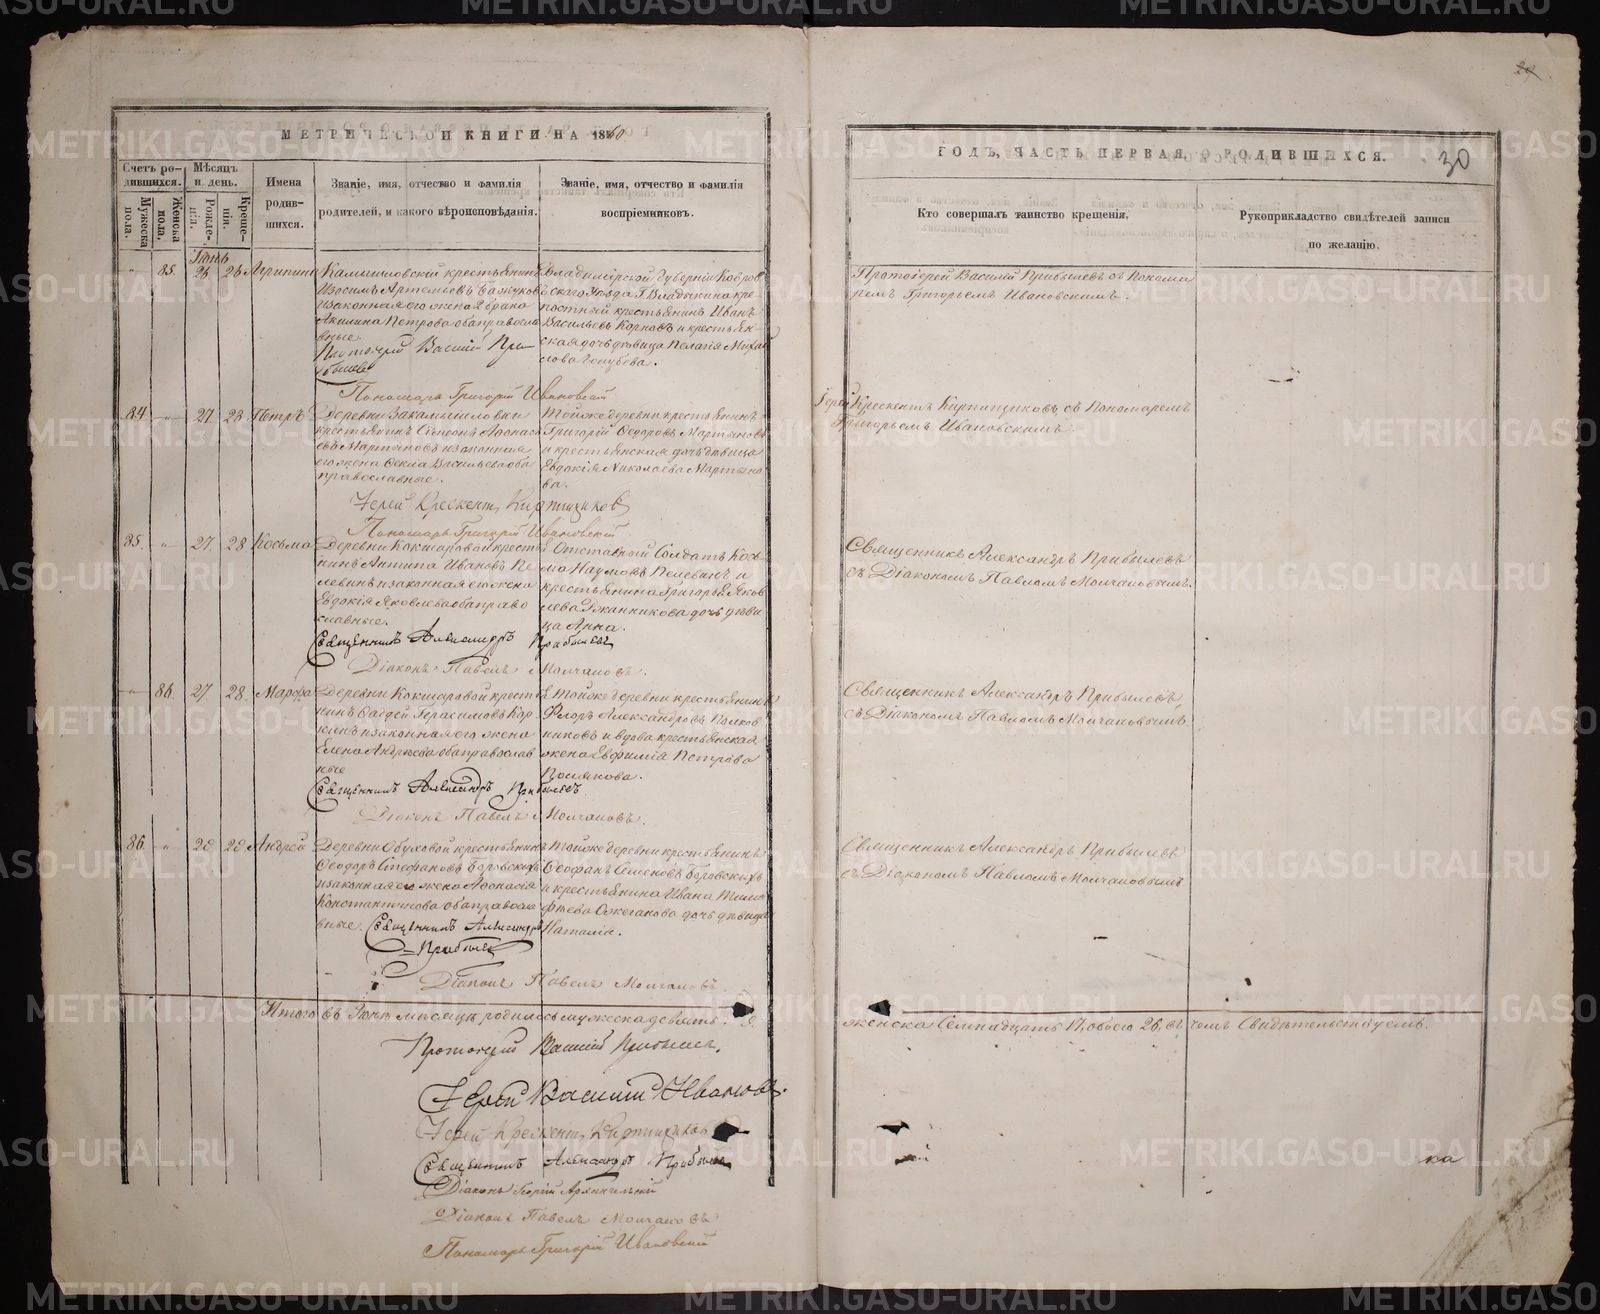 МЕТРИЧЕСКОЙ КНИГИ НА 1860
Счетъ родившихся.
Мужеска пола.
Женска пола.
Мѣсяцъ и день.
Рожденія.
Крещенія.
Имена родившихся.
Званіе, имя, отчество и фамилія
родителей, и какого вѣроисповѣданія.
Званіе, имя, отчество и фамилія
воспріемниковъ.
Іюнь
85. 26 26 Агрипина
Камышловскій крестьянинъ
Изосимъ Артемьевъ
и законная его жена 2 брака
Акилина Петрова оба православные
Протоіерей Василій Прибылевъ
Пономарь Григорій Ивановскій
Владимірской Губерніи Ковров
скаго Уѣзда Г. Владыкина кре
постный крестьянинъ Иванъ
Васильевъ Корновъ и крестьян
ская дочь дѣвица Пелагія Михай
лова Голубева.
84. " 27. 28 Петръ
Деревни Закамышловки
крестьянинъ Симеонъ Афонась
евъ Мартыновъ и законная
его жена Фекла Васильева оба
православные.
Іерей Крескентъ Кирпищиковъ
Пономарь Григорій Ивановскій
Тойже деревни крестьянинъ
Григорій Ѳедоровъ Мартыновъ
и крестьянская дочь дѣвица
Евдокія Николаева Мартыно
ва.
85. " 27. 28 Косьма
Деревни Кокшаровой кресть
нинъ Антипа Ивановъ Пе
левинъ и законная его жена
Евдокія Яковлева оба право
славные.
Священникъ Александръ Прибылевъ
Діаконъ Павелъ Молчановъ.
Отставный Солдатъ Кось
ма Наумовъ Пелевинъ и
крестьянина Григорья Яков
лева дочь дѣви
ца Анна.
" 86. 27 28. Марфа
Деревни Кокшаровой кресть
нинъ Фаддей Герасимовъ
и законная его жена
Елена Андреева оба православ
ные
Священникъ Александръ Прибылевъ
Діаконъ Павелъ Молчановъ.
Тойже деревни крестьянинъ
Флоръ Александровъ
и вдова крестьянская
жена Евфимія Петрова
86. " 28 28 Андрей
Деревни Обуховой крестьянинъ
Феодоръ Стефановъ Боровскихъ
и законная его жена Афонасія
Константинова оба православ
ные. Священникъ Александръ
Прибылевъ
Діаконъ Павелъ Молчановъ.
Тойже деревни крестьянинъ
Феофанъ Семеновъ Боровскихъ
и крестьянина Ивана Тимо
фѣева Ожеганова дочь дѣвица
Наталія.
Итого въ Іюнѣ мѣсяцѣ родилось мужеска девять. 9.
Протоіерей Василій Прибылевъ.
Іерей Василій Ивановъ.
Іерей Крескентъ Кирпищиковъ
Священникъ Александръ Прибылевъ
Діаконъ Георгій Архангельскій
Діаконъ Павелъ Молчановъ
Пономарь Григорій Ивановскій
29
30
ГОДЪ, ЧАСТЬ ПЕРВАЯ, О РОДИВШИХСЯ.
Кто совершалъ таинство крещенія,
Рукоприкладство свидѣтелей записи
по желанію.
Протоіерей Василій Прибылевъ съ Понома
ремъ Григорьемъ Ивановскимъ.
Іерей Крескентъ Кирпищиковъ съ Пономаремъ
Григорьемъ Ивановскимъ.
Священникъ Александръ Прибылевъ
съ Діакономъ Павломъ Молчановымъ.
Священникъ Александръ Прибылевъ
съ Діакономъ Павломъ Молчановымъ
Священникъ Александръ Прибылевъ
съ Діакономъ Павломъ Молчановымъ
женска Семнадцать 17, обоего 26, въ чемъ Свидѣтельствуемъ.
ка
METRIKI.GASO-URAL.RU